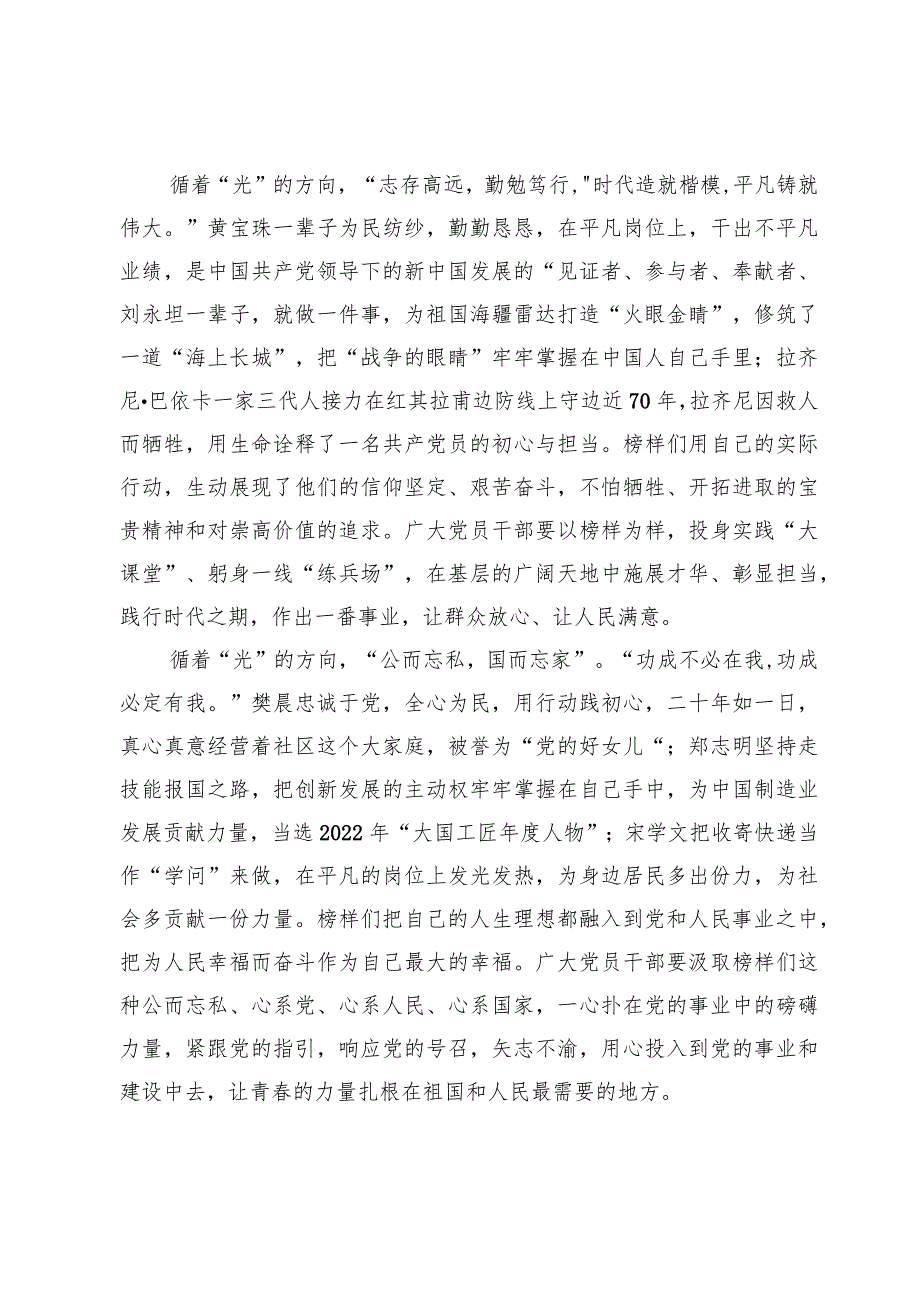 循着“光”的方向，“志存高远，勤勉笃行,"时代造就楷模,平凡铸就
伟大。”黄宝珠一辈子为民纺纱，勤勤恳恳，在平凡岗位上，干出不平凡
业绩，是中国共产党领导下的新中国发展的“见证者、参与者、奉献者、
刘永坦一辈子，就做一件事，为祖国海疆雷达打造“火眼金睛”，修筑了
一道“海上长城”，把“战争的眼睛”牢牢掌握在中国人自己手里；拉齐
尼•巴依卡一家三代人接力在红其拉甫边防线上守边近 70 年,拉齐尼因救人
而牺牲，用生命诠释了一名共产党员的初心与担当。榜样们用自己的实际
行动，生动展现了他们的信仰坚定、艰苦奋斗，不怕牺牲、开拓进取的宝
贵精神和对崇高价值的追求。广大党员干部要以榜样为样，投身实践“大
课堂”、躬身一线“练兵场”，在基层的广阔天地中施展才华、彰显担当，
践行时代之期，作出一番事业，让群众放心、让人民满意。
循着“光”的方向，“公而忘私，国而忘家”。“功成不必在我,功成
必定有我。”樊晨忠诚于党，全心为民，用行动践初心，二十年如一日，
真心真意经营着社区这个大家庭，被誉为“党的好女儿“；郑志明坚持走
技能报国之路，把创新发展的主动权牢牢掌握在自己手中，为中国制造业
发展贡献力量，当选 2022 年“大国工匠年度人物”；宋学文把收寄快递当
作“学问”来做，在平凡的岗位上发光发热，为身边居民多出份力，为社
会多贡献一份力量。榜样们把自己的人生理想都融入到党和人民事业之中，
把为人民幸福而奋斗作为自己最大的幸福。广大党员干部要汲取榜样们这
种公而忘私、心系党、心系人民、心系国家，一心扑在党的事业中的磅礴
力量，紧跟党的指引，响应党的号召，矢志不渝，用心投入到党的事业和
建设中去，让青春的力量扎根在祖国和人民最需要的地方。